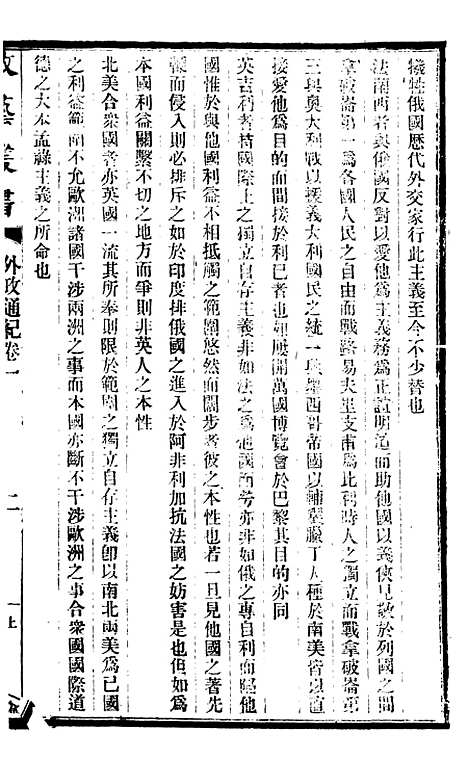 犧牲俄國歷代外交家行此主義至今不少替也
法蘭西者與俄國反對以愛他為主義務為正誼明道而助他國以義俠見敬於列國之間
拿破崙第一為各國人民之自由而戰路易夫里支甫為比利時人之獨立而戰拿破崙第
三與奧大利戰以援義大利國民之統一與墨西哥帝國以輔翼臘丁人種於南美皆以直
接愛他為目的而間接於利己者也如屢開萬國博覽會於巴黎其目的亦同
英吉利者持國際上之獨立自存主義非如法之為他國所勞亦非如俄之專自利而屈他
國惟於與他國利益不相抵觸之範圍悠然而闊步者彼之本性也若一旦見他國之著先
鞭而侵入則必排斥之如於印度排俄國之進入於阿非利加抗法國之妨害是也但如為
本國利益關繫不切之地方而爭則非英人之本性
北美合衆國者亦英國一流其所奉則限於範圍之獨立自存主義卽以南北兩美為己國
之利益範圍不允歐洲諸國干涉兩洲之事而本國亦斷不干涉歐洲之事合衆國國際道
德之大本孟祿主義之所命也
政藝叢書
外政通紀卷一
二
上